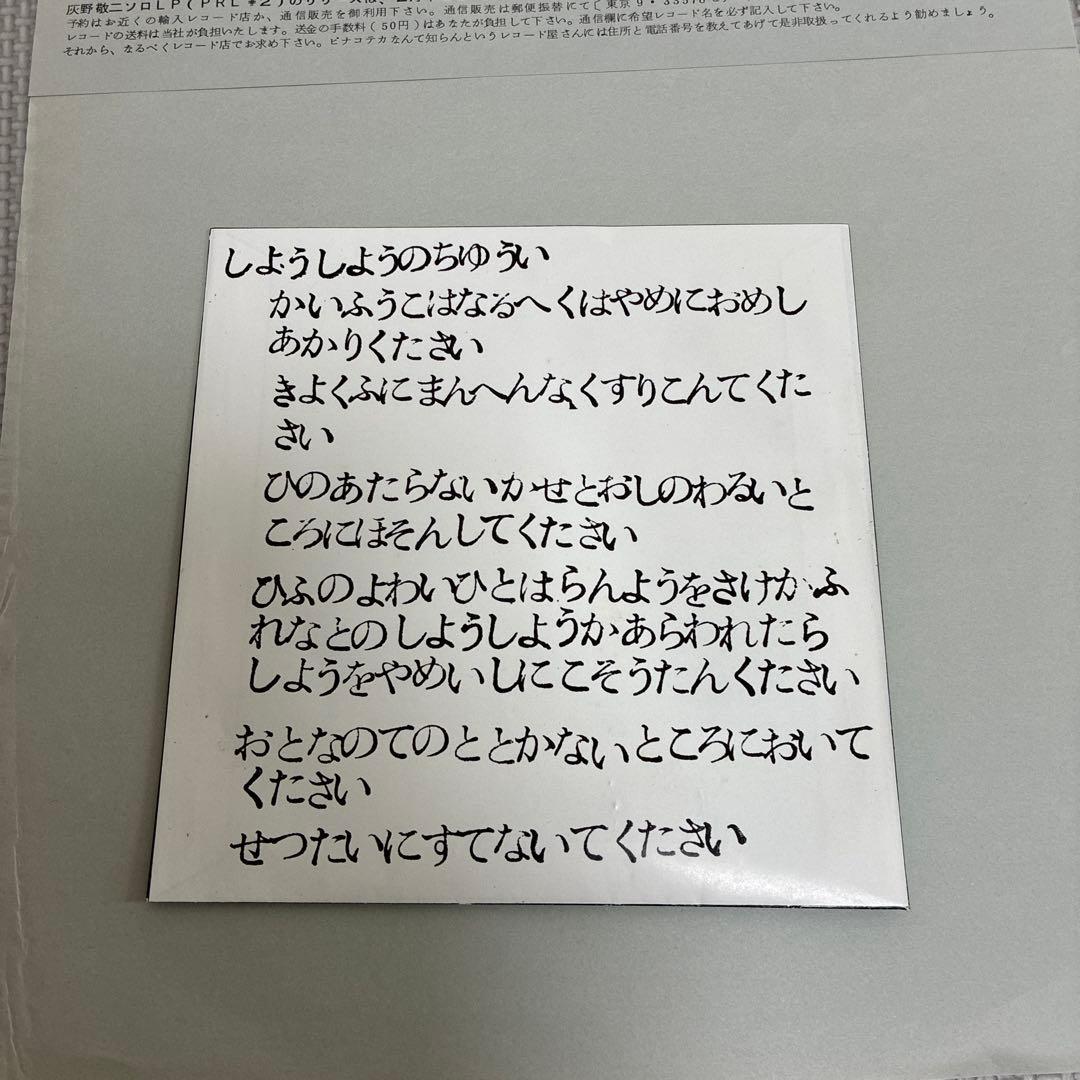 灰野敬二ソロLP(PRL #2)のリリースは、
予約はお近くの輸入レコード店か、通信販売を御利用下さい。通信販売は郵便振替にて〔東京9・
レコードの送料は当社が負担いたします。送金の手数料(50円)はあなたが負担して下さい。通信欄に希望レコード名を必ず記入して下さい。
それから、なるべくレコード店でお求め下さい。ピナコテカなんて知らんというレコード屋さんには住所と電話番号を教えてあげて是非取扱ってくれるよう勧めましょう。
しようしようのちゆうい
かいふうこはなるへくはやめにおめし
あかりくたさい
きよくふにまんへんなくすりこんてくた
さい
ひのあたらないかせとおしのわるいと
ころにほそんしてくたさい
ひふのよわいひとはらんようをさけかふ
れなとのしようしようかあらわれたら
しようをやめいしにこそうたんくたさい
おとなのてのととかないところにおいて
くたさい
せつたいにすてないてくたさい